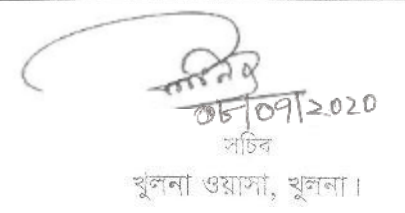 ০৮/০৭/২০২০
সচিব
খুলনা ওয়াসা, খুলনা।